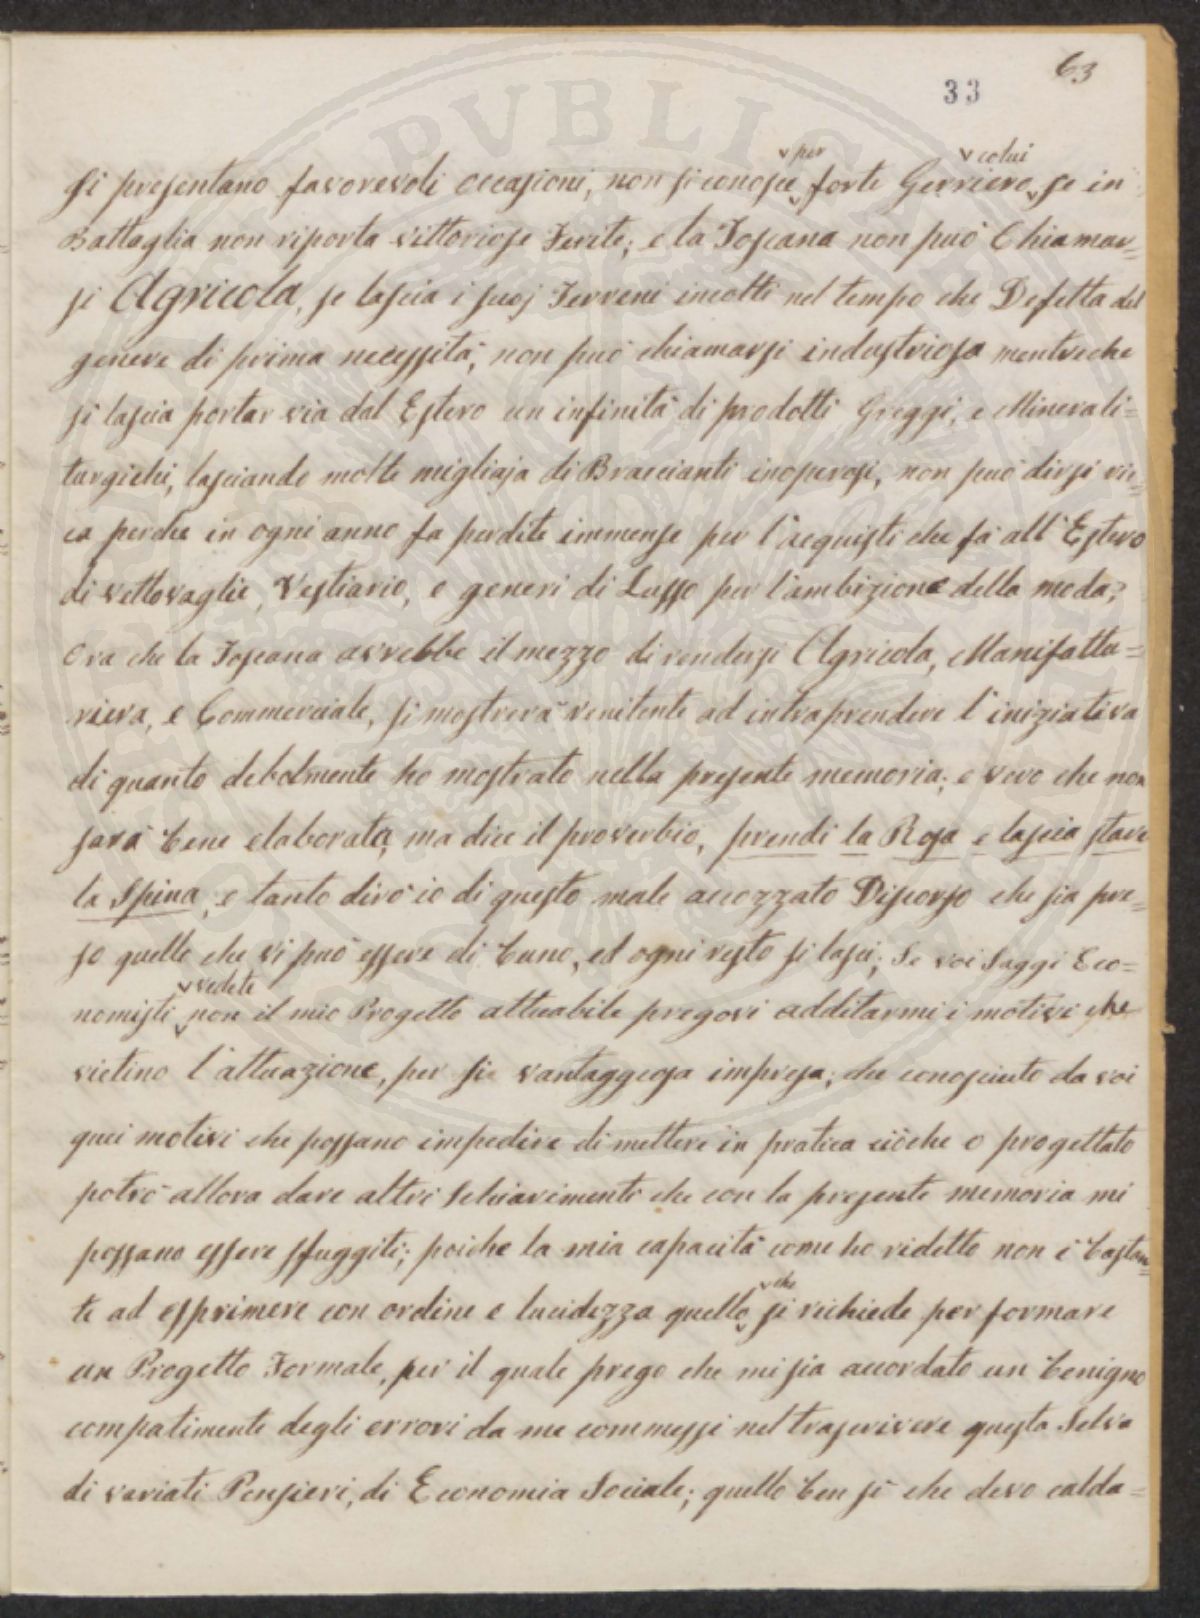 63
33
si presentano favorevoli occasioni, non si conosce per forte Gerriero colui se in
Battaglia non riporta vittoriose Ferite; e la Toscana non può Chiamar=
si Agricola, se lascia i suoj Terreni incolti nel tempo che Defetta del
genere di prima necessità; non può chiamarsi industriosa mentreche
si lascia portar via dal Estero un infinità di prodotti Greggi, e Minerali=
turgichi, lasciando molte migliaja di Braccianti inoperosi, non può dirsi ric=
ca perche in ogni anno fa perdite immense per l'acquisti che fà all'Estero
di vettovaglie, Vestiario, e generi di Lusso per l'ambizione della moda;
Ora che la Toscana avrebbe il mezzo di rendersi Agricola, Manifattu=
riera, e Commerciale, si mostrerà renitente ad intraprendere l'iniziativa
di quanto debolmente ho mostrato nella presente memoria; e vero che non
sarà bene elaborata, ma dice il proverbio, prendi la Rosa e lascia stare
la Spina, e tanto dirò io di questo male accozzato Discorso che sia pre=
so quello che vi può essere di buno, ed ogni resto si lasci; Se voi Saggi Eco=
nomisti vedete non il mio Progetto attuabile pregovi additarmi i motivi che
vietino l'attuazione, per si vantaggiosa impresa; che conosciuto da voi
quei motivi che possano impedire di mettere in pratica ciòche o progettato
potrò allora dare altri Schiarimenti che con la presente memoria mi
possano essere sfuggiti; poiche la mia capacità come ho ridetto non è bastan=
te ad esprimere con ordine e lucidezza quello che si richiede per formare
un Progetto Formale, per il quale prego che mi sia accordato un benigno
compatimento degli errori da me commessi nel trascrivere questa Selva
di variati Pensieri, di Economia Sociale; quello ben sì che devo calda=